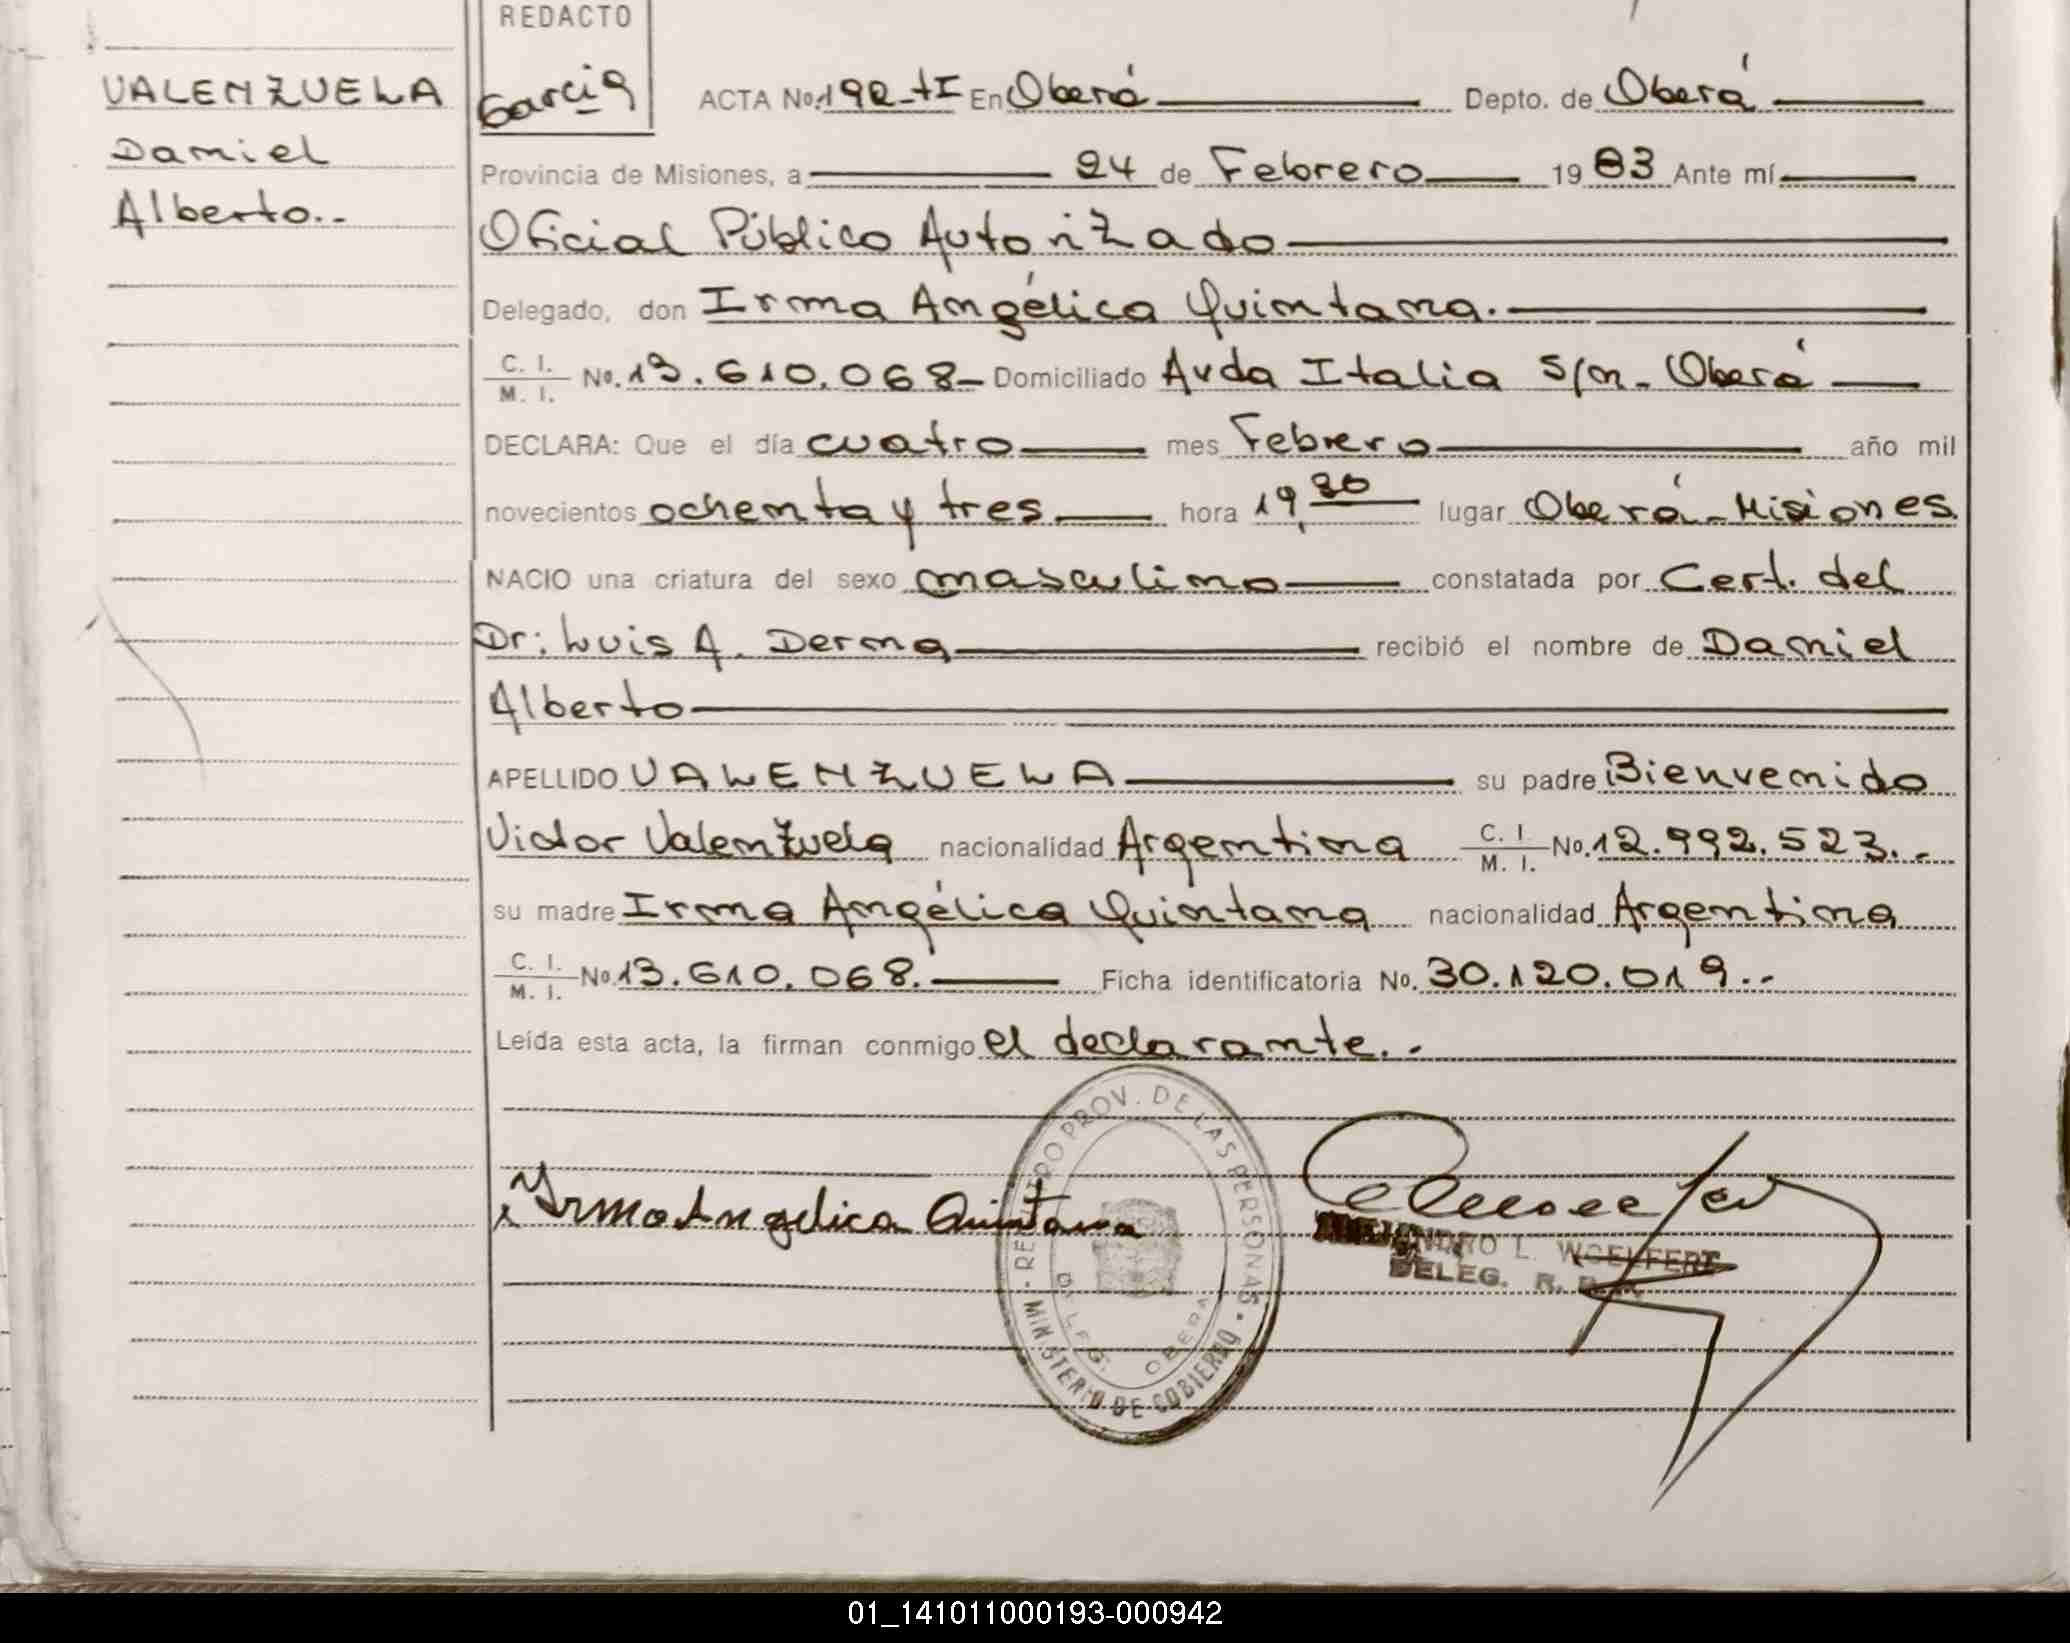 REDACTO
VALENZUELA
Daniel
Alberto..
Garcia
ACTA No. 192-tI En Oberá Depto. de Oberá
Provincia de Misiones, a 24 de Febrero 1983 Ante mí
Oficial Público Autorizado
Delegado, don Irma Angélica Quintana.
C. I. / M. I. No. 13.610.068- Domiciliado Avda Italia S/n. Oberá
DECLARA: Que el día cuatro mes Febrero año mil
novecientos ochenta y tres hora 19,30 lugar Oberá-Misiones
NACIO una criatura del sexo masculino constatada por Cert. del
Dr: Luis A. Derna recibió el nombre de Daniel
Alberto
APELLIDO VALENZUELA su padre Bienvenido
Victor Valenzuela nacionalidad Argentina C. I. / M. I. No. 12.992.523..-
su madre Irma Angélica Quintana nacionalidad Argentina
C. I. / M. I. No. 13.610.068. Ficha identificatoria No. 30.120.019..-
Leída esta acta, la firman conmigo el declarante..-
Yrma Angelica Quintana
REGISTRO PROV. DE LAS PERSONAS
MINISTERIO DE GOBIERNO
DELEG. OBERA
ALEJANDRO L. WOELFERT
DELEG. R.
01_141011000193-000942